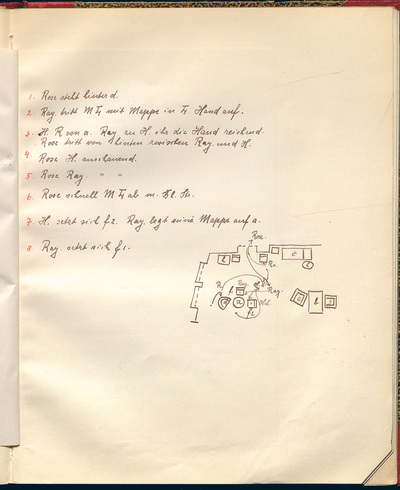 1. Rose steht hinter d.
2. Ray tritt M T4 mit Mappe in Hand auf.
3. H. R von a. Ray zu H. ihr die Hand reichend.
Rose tritt von hinten zwischen Ray und H.
4. Rose H. anschauend.
5. Rose Ray. " "
6. Rose schnell M T4 ab m. Kl. Th.
7. H. setzt sich f2. Ray legt seine Mappe auf a.
8. Ray setzt sich f1.
Rose
c
b
Ro.
R.
f
Ray
Ray
a
f2
b